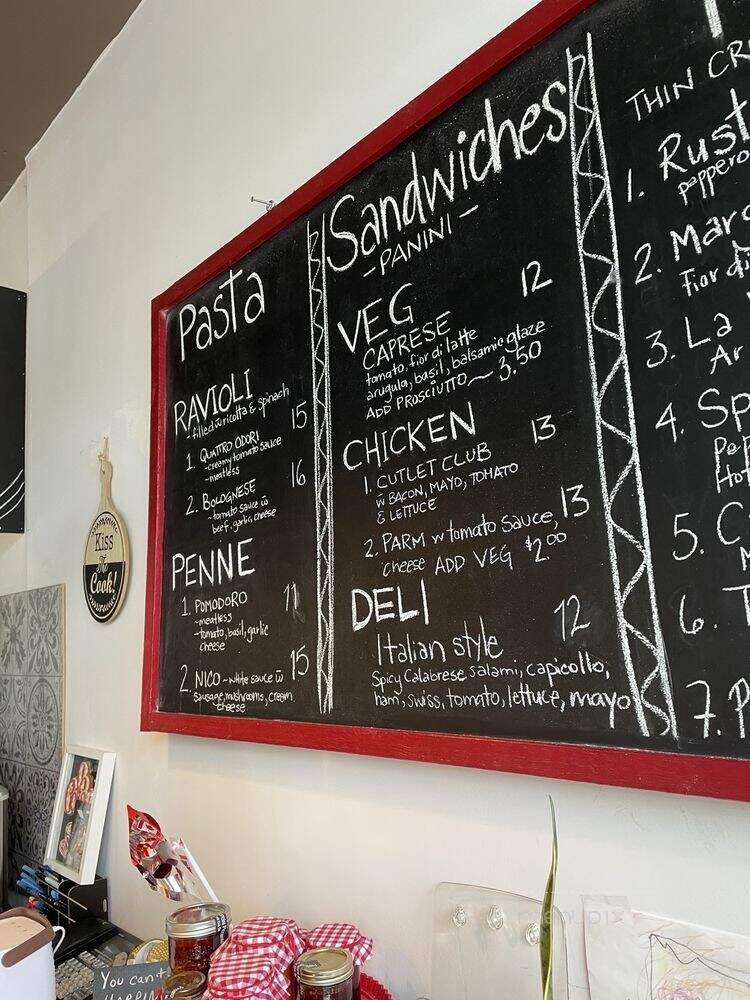 Pasta
RAVIOLI
- filled w ricotta & spinach
1. QUATTRO ODORI 15
- creamy tomato sauce
- meatless
2. BOLOGNESE 16
- tomato sauce w
beef, garlic, cheese
PENNE
1. POMODORO 11
- meatless
- tomato, basil, garlic
cheese
2. NICO - white sauce w 15
sausage, mushrooms, cream
cheese
Sandwiches
- PANINI -
VEG 12
CAPRESE
tomato, fior di latte
arugula, basil, balsamic glaze
ADD PROSCIUTTO ~ 3.50
CHICKEN 13
1. CUTLET CLUB
W BACON, MAYO, TOMATO
& LETTUCE
2. PARM w tomato sauce, 13
cheese ADD VEG $2.00
DELI 12
Italian style
Spicy Calabrese salami, capicollo,
ham, swiss, tomato, lettuce, mayo
THIN CR
1. Rust
peppero
2. Mar
fior di
3. La
Ar
4. Sp
Pep
Hot
5. C
6. T
7. P
Kiss
The
Cook!
You can't
menupix